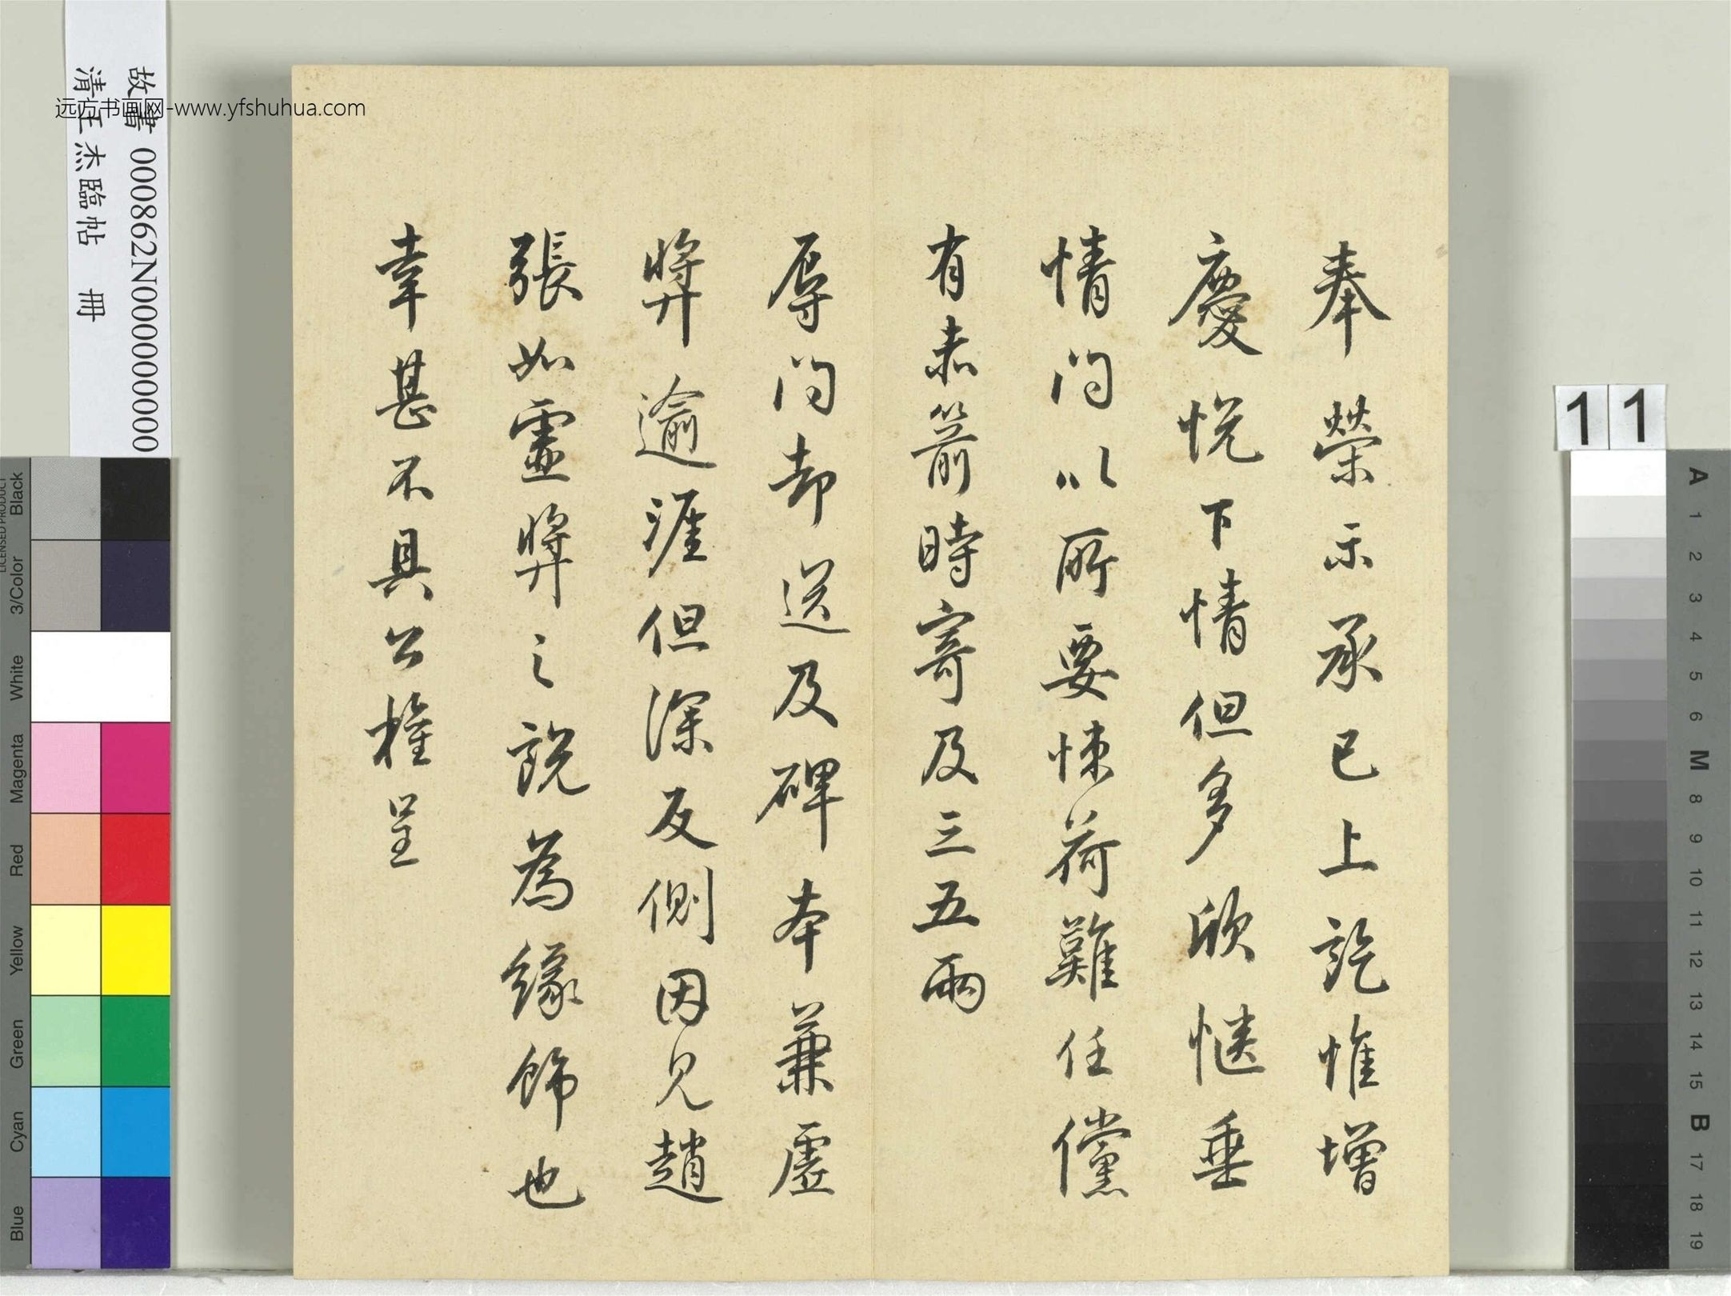 奉榮示承已上訖惟增
慶悅下情但多欣愜垂
情問以所要悚荷難任儻
有赤箭時寄及三五兩
辱問卻送及碑本兼虛
獎逾涯但深反側因見趙
張如虛獎之說為緣飾也
幸甚不具公權呈
故書 000862N000000000
清王杰臨帖 冊
远方书画网-www.yfshuhua.com
11
Black
3/Color
White
Magenta
Red
Yellow
Green
Cyan
Blue
LICENSED PRODUCT
A
1
2
3
4
5
6
M
8
9
10
11
12
13
14
15
B
17
18
19